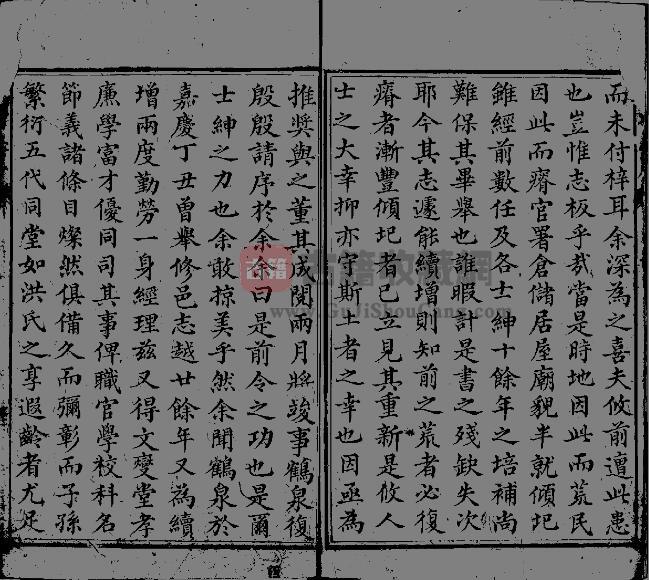 而未付梓耳余深為之喜夫攸前遭此患
也豈惟志板乎哉當是時地因此而荒民
因此而瘠官署倉儲居屋廟貌半就傾圮
雖經前數任及各士紳十餘年之培補尚
難保其畢舉也誰暇計是書之殘缺失次
耶今其志遽能續增則知前之荒者必復
瘠者漸豐傾圮者已立見其重新是攸人
士之大幸抑亦宰斯土者之幸也因亟為
推奬與之董其成閱兩月將竣事鶴泉復
殷殷請序於余余曰是前令之功也是爾
士紳之力也余敢掠美乎然余聞鶴泉於
嘉慶丁丑曾舉修邑志越廿餘年又為續
增兩度勤勞一身經理兹又得文燮堂孝
廉學富才優同司其事俾職官學校科名
節義諸條目燦然俱備久而彌彰而子孫
繁衍五代同堂如洪氏之享遐齡者尤足
四
古籍收藏網
www.GuJiShouCang.com
古籍